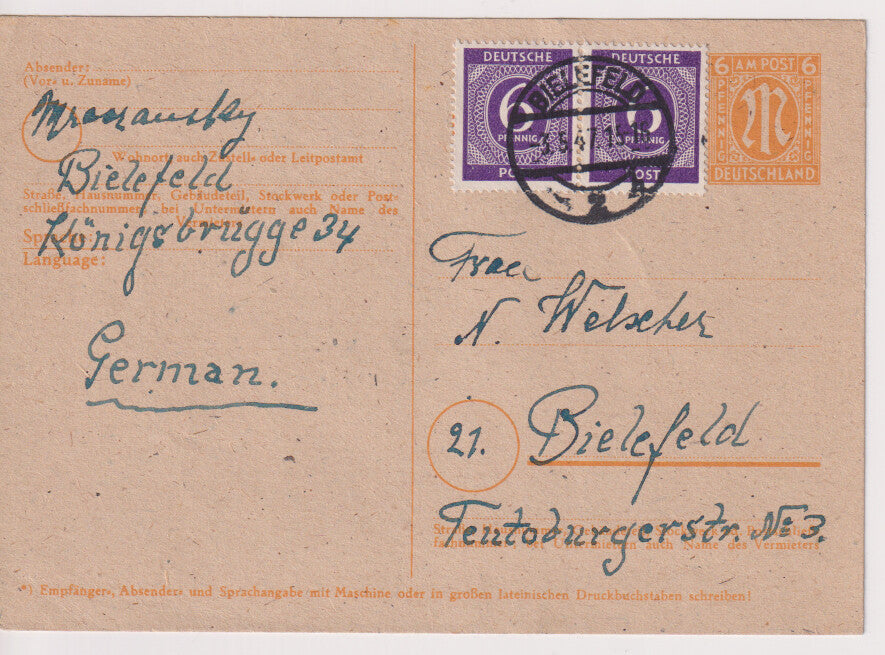 Absender:
(Vor- u. Zuname)
Mroczansky
Wohnort, auch Zustell- oder Leitpostamt
Bielefeld
Straße, Hausnummer, Gebäudeteil, Stockwerk oder Post-
schließfachnummer, bei Untermietern auch Name des
Vermieters
Königsbrügge 34
Sprache:
Language:
German.
DEUTSCHE
6
PFENNIG
POST
DEUTSCHE
6
PFENNIG
POST
BIELEFELD
47
2
6 AM POST 6
PFENNIG
M
PFENNIG
DEUTSCHLAND
Frau
N. Welscher
21. Bielefeld
Teutoburgerstr. № 3.
auch Name des Vermieters
*) Empfänger-, Absender- und Sprachangabe mit Maschine oder in großen lateinischen Druckbuchstaben schreiben!